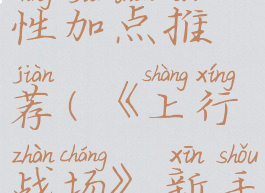 性加点推
jiàn shàng xíng
荐(《上行
zhàn cháng xīn shǒu
战场》 新手